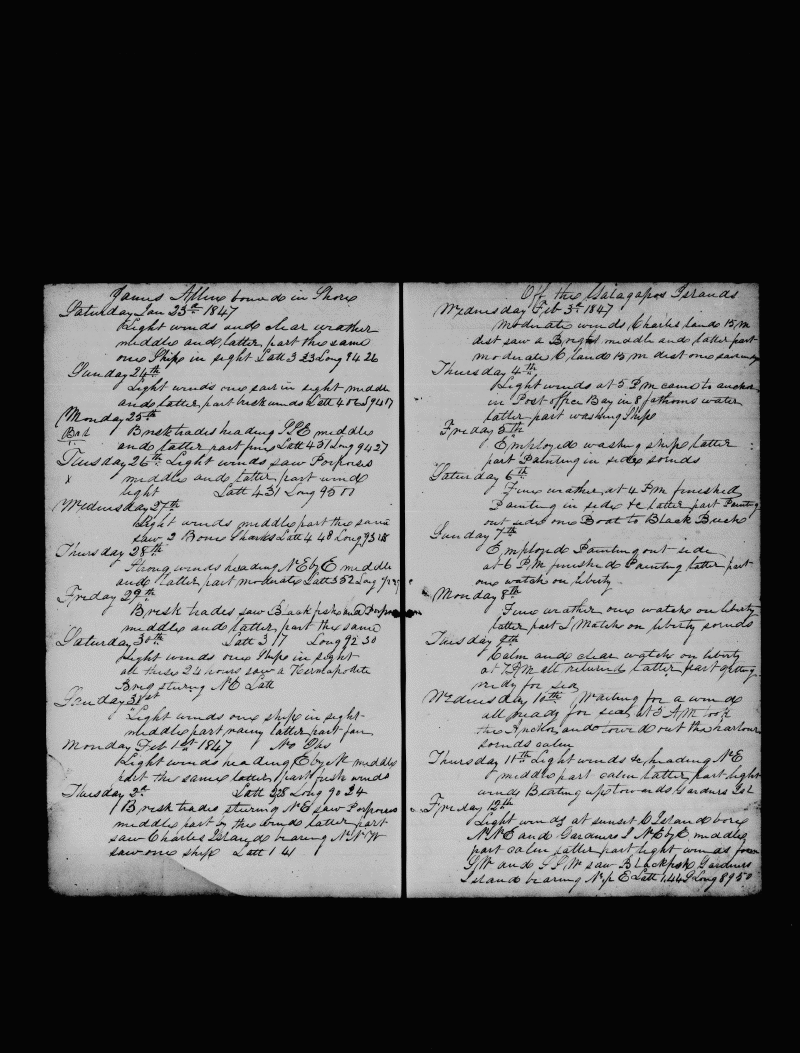 James Allen bound in Shore
Saturday Jan 23d 1847
Light winds and clear weather
middle and latter part the same
one Ship in sight Latt 3 23 Long 94 26
Sunday 24th
Light winds one sail in sight middle
and latter part brisk winds Latt 4 06 S 94 17
Monday 25th
Brisk trades heading SSE middle
and latter part fine Latt 4 31 Long 94 27
Tuesday 26th Light winds saw Porpoises
x middle and latter part wind
light Latt 4 31 Long 93 00
Wednesday 27th
Light winds middle part the same
saw 2 Bone Sharks Latt 4 48 Long 93 18
Thursday 28th
Strong winds heading NE by E middle
and latter part moderate Latt 3 52 Long
Friday 29th
Brisk trades saw Black fish and
middle and latter part the same
Saturday 30th Latt 3 17 Long 92 30
Light winds one Ship in sight
all these 24 hours saw a Hermaphodite
Brig sturing NE Latt
Sunday 31st
Light winds one ship in sight
middle part rainy latter part fair
Monday Feb 1st 1847 No Obs
Light winds heading E by N middle
part the same latter part fresh winds
Thuesday 2d Latt 2 28 Long 90 24
Bresk trades sturing NE saw Porpoises
middle part by the wind latter part
saw Charles Island bearing NNW
saw one ship Latt 1 41
Off the Galagapos Islands
Wednesday Feb 3d 1847
Moderate winds Charles land 15 m
dist saw a Brig middle and latter part
moderate C land 15 m dist one sail
Thursday 4th
Light winds at 5 P M came to anchor
in Post office Bay in 8 fathoms water
latter part washing Ship
Friday 5th
Employed washing ship latter
part Painting in side sounds
Saturday 6th
Fine weather at 4 P M finished
Painting in side &c latter part Painting
out side one Boat to Black Beach
Sunday 7th
Employed Painting out side
at 6 P M finished Painting latter part
one watch on liberty
Monday 8th
Fine weather one watch on liberty
latter part S Watch on liberty sounds
Tuisday 9th
Calm and clear watch on liberty
at 7 A M all returned latter part getting
ready for sea
Wednuesday 10th Waiting for a wind
all ready for sea at 5 A M took
the Anchor and towed out the harbour
sounds calm
Thursday 11th Light winds &c heading NE
middle part calm latter part light
winds Beating up towards Gardners Isl
Friday 12th
Light winds at sunset C Island bore
NNE and Gardners I NE by E middle
part calm latter part light winds from
SW and SSW saw Blackfish Gardners
Island bearing N p E Latt 1.44 S Long 89 50